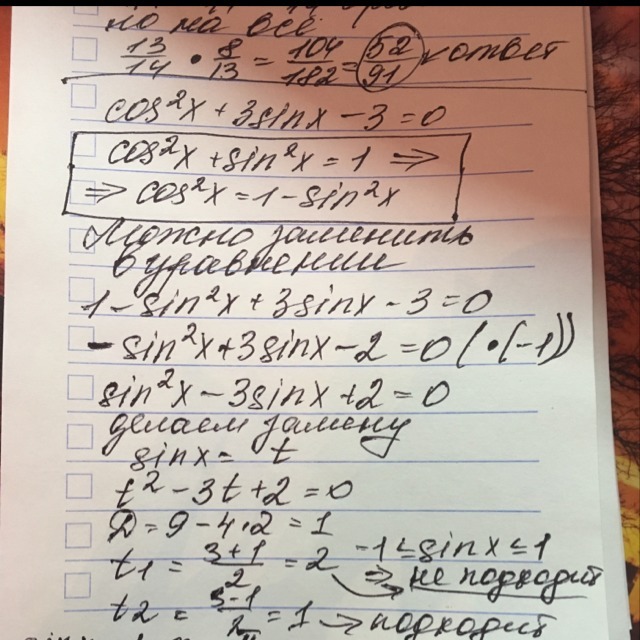 но на все
13/14 • 8/13 = 104/182 = 52/91 ответ
cos²x + 3sinx - 3 = 0
cos²x + sin²x = 1 ⇒
⇒ cos²x = 1 - sin²x
Можно заменить
в уравнении
1 - sin²x + 3sinx - 3 = 0
- sin²x + 3sinx - 2 = 0 (•(-1))
sin²x - 3sinx + 2 = 0
делаем замену
sinx = t
t² - 3t + 2 = 0
D = 9 - 4•2 = 1
t1 = 3+1/2 = 2 -1 ≤ sinx ≤ 1
⇒ не подходит
t2 = 3-1/2 = 1 → подходит